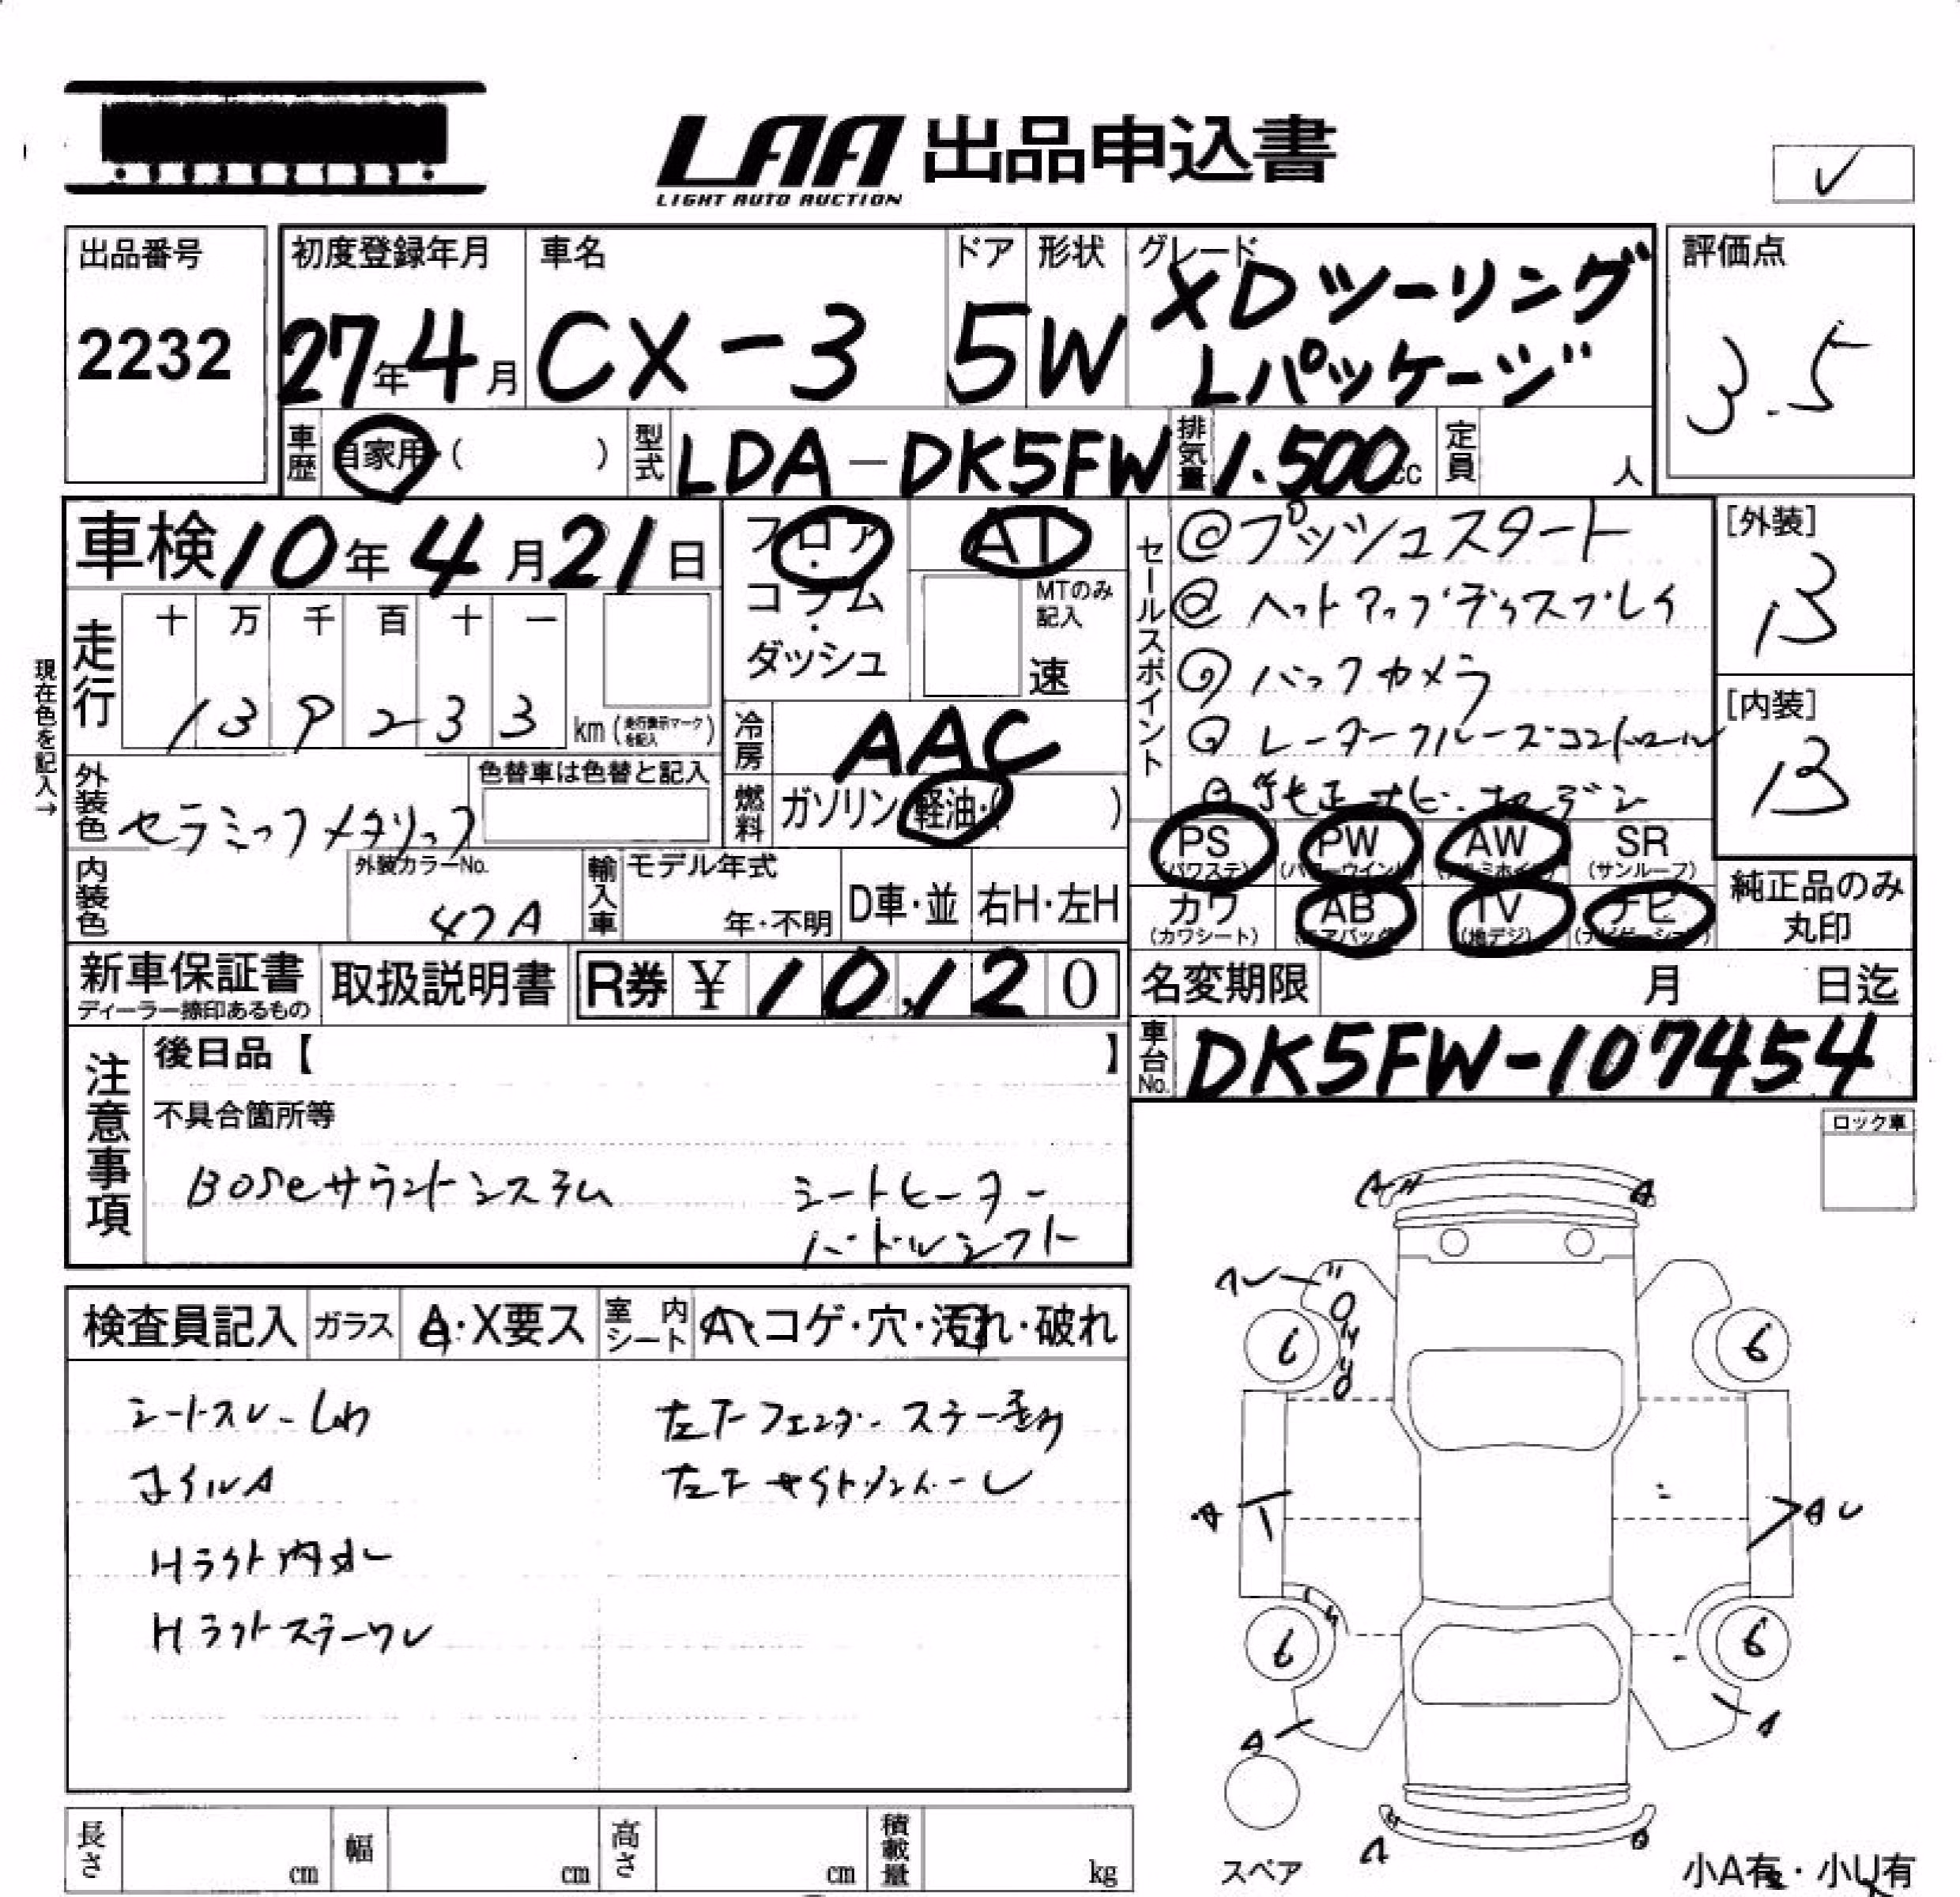 LAA 出品申込書
LIGHT AUTO AUCTION
出品番号
2232
初度登録年月
27年4月
車名
CX-3
ドア
5
形状
W
グレード
XDツーリング
Lパッケージ
評価点
3.5
車歴
自家用・( )
型式
LDA-DK5FW
排気量
1.500cc
定員
人
車検10年4月21日
フロア
・
コラム
・
ダッシュ
AT
MTのみ
記入
速
セールスポイント
@プッシュスタート
@ヘットアップディスプレイ
@バックカメラ
@レーダークルーズコントロール
@純正ナビ・地デジ
[外装]
B
[内装]
B
現在色を記入→
走行
十 万 千 百 十 一
1 3 9 2 3 3
km (走行表示マークを記入)
冷房
AAC
燃料
ガソリン・軽油・( )
外装色
セラミックメタリック
色替車は色替と記入
内装色
外装カラーNo.
47A
輸入車
モデル年式
年・不明
D車・並
右H・左H
PS
(パワステ)
PW
(パワーウインド)
AW
(アルミホイル)
SR
(サンルーフ)
カワ
(カワシート)
AB
(エアバック)
TV
(地デジ)
ナビ
(ナビゲーション)
純正品のみ
丸印
新車保証書
ディーラー捺印あるもの
取扱説明書
R券 ¥10,120
名変期限 月 日迄
車台No.
DK5FW-107454
注意事項
後日品【 】
不具合箇所等
BOSEサラウンドシステム シートヒーター
パドルシフト
ロック車
検査員記入
ガラス
A・X要ス
室内シート
A・コゲ・穴・汚れ・破れ
シートスレ
ホイルA
Hライト内
Hライトステーワレ
左Fフェンダーステー
左Fサイドメンバー
6
6
6
6
A
A
A
A
スペア
小A有・小U有
長さ cm
幅 cm
高さ cm
積載量 kg